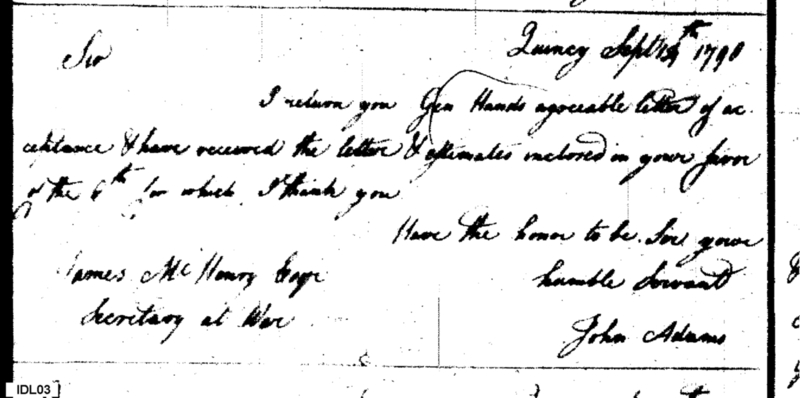 Quincy Septr 14th 1798
Sir
I return you Gen Hands agreeable letter of ac
ceptance & have received the letter & estimates inclosed in your favor
of the 6th for which I thank you
Have the honor to be Sir your
James McHenry Esqr humble Servant
Secretary at War
John Adams
IDL03